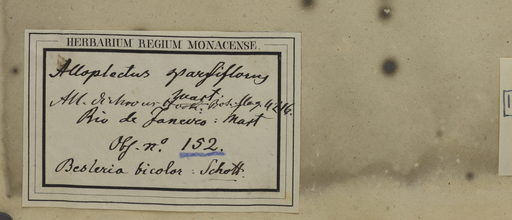 HERBARIUM REGIUM MONACENSE.
Alloplectus sparsiflorus
Mart.
All. dichrous
Rio de Janeiro: Mart
Obs. nº. 152.
Besleria bicolor: Schott.